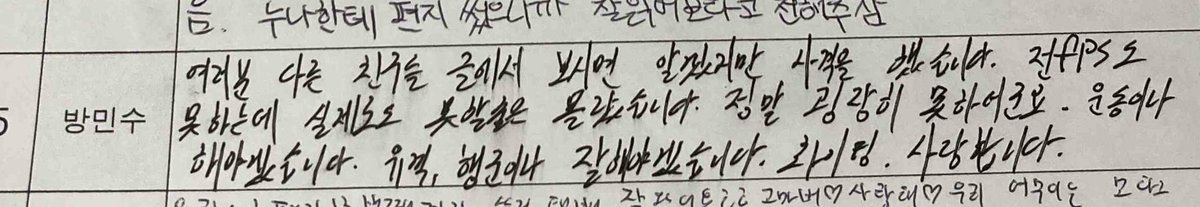 음. 누나한테 편지 썼으니까 잘 읽어보라고 전해주삼
5
방민수
여러분 다른 친구들 글에서 보시면 알겠지만 사격을 했습니다. 전 fps도
못하는데 실제로도 못할줄은 몰랐습니다. 정말 굉장히 못하더군요. 운동이나
해야겠습니다. 유격, 행군이나 잘해야겠습니다. 화이팅. 사랑합니다.
고마버♡사랑해♡우리